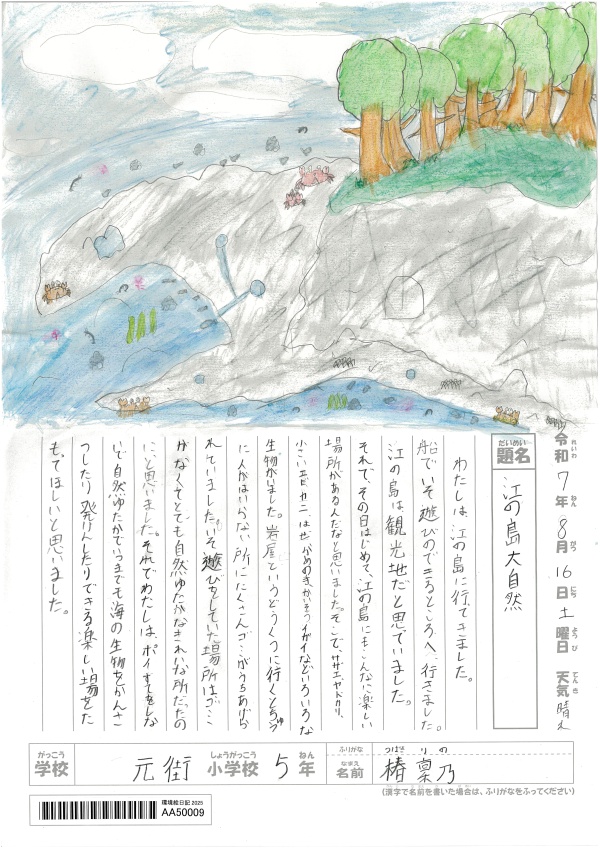 令和れいわ 7年ねん 8月がつ 16日にち 土曜日ようび 天気てんき 晴れ
題名だいめい 江の島大自然
わたしは、江の島に行ってきました。
船でいそ遊びのできるところへ、行きました。
江の島は、観光地だと思っていました。
それで、その日はじめて、江の島にも、こんなに楽しい
場所があるんだなと思いました。そこで、サザエ、ヤドカリ、
小さいエビ、カニ、はぜ、かめのき、かいそう、イガイなどいろいろな
生物がいました。岩屋というどうくつに行くとちゅう
に人がはいらない所にたくさんゴミがうちあげら
れていました。いそ遊びをしていた場所はゴミ
がなくてとても自然ゆたかなきれいな所だったの
に、と思いました。それでわたしは、ポイすてをしな
いで自然ゆたかでいつまでも海の生物をかんさ
つしたり発けんしたりできる楽しい場をた
もってほしいと思いました。
学校がっこう 元街小学校しょうがっこう 5年ねん
ふりがな つばき りの
名前なまえ 椿 稟乃
(漢字で名前を書いた場合は、ふりがなをふってください)
環境絵日記 2025
AA50009